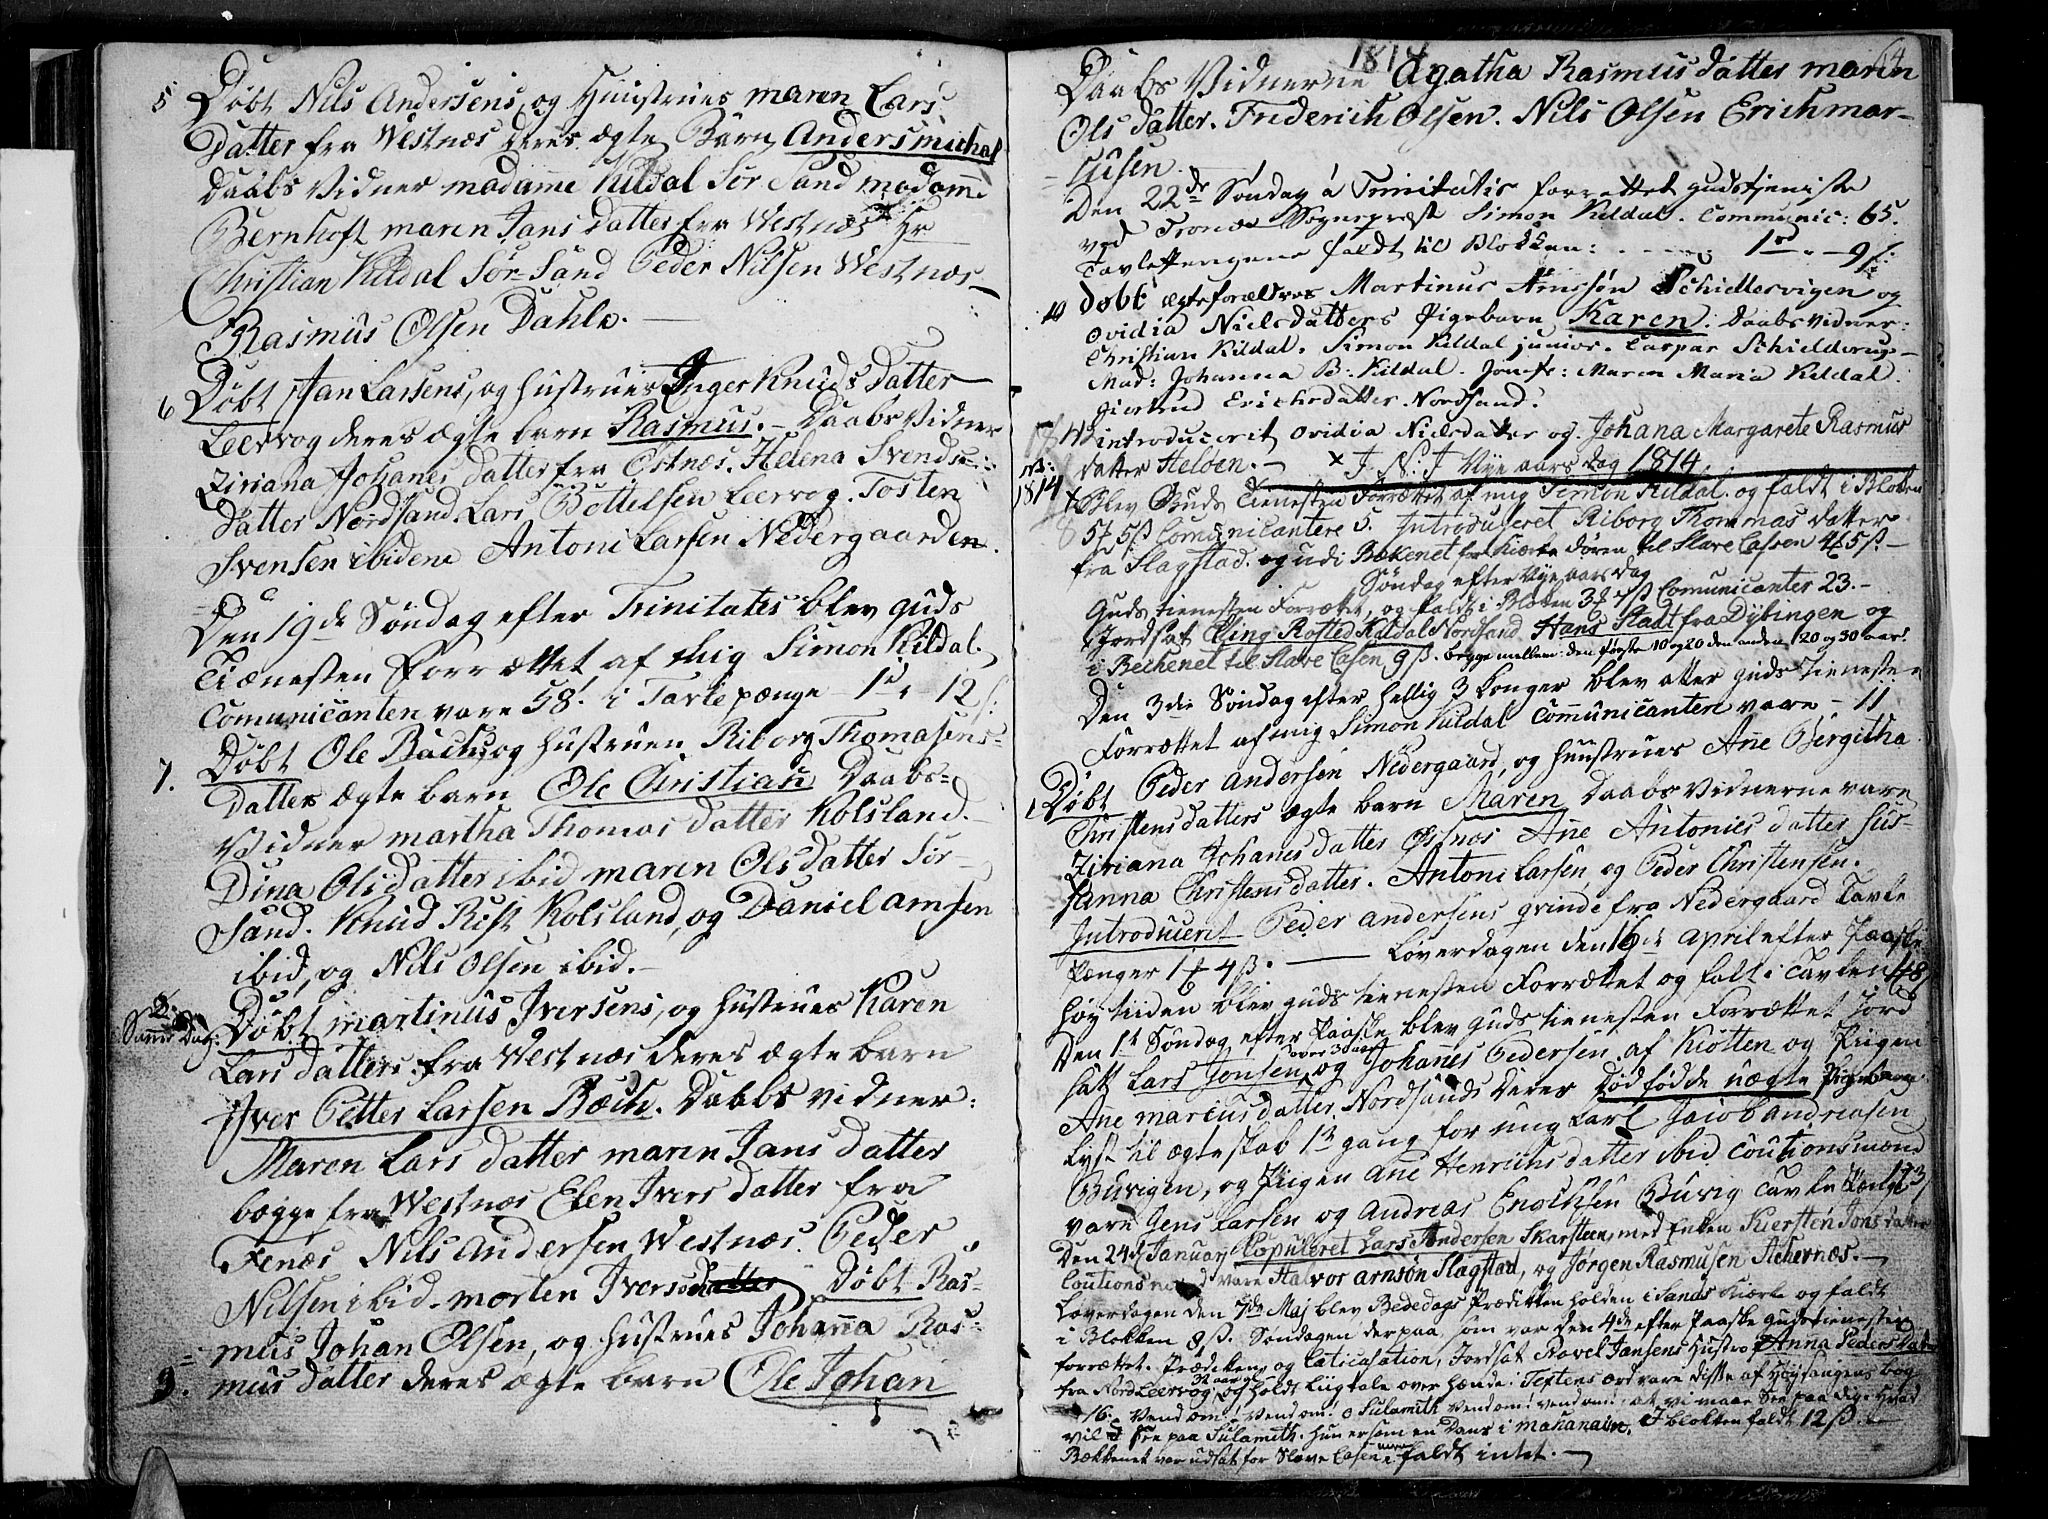 5 Døbt Nils Andersens, og Hustrues maren Lars
Datter fra Westnæs deres ægte Barn Anders michal
Daabs Vidner madame Kildal Sør Sand madame
Bernhoft maren Jans Datter fra Westnæs Hr
Christian Kildal Sør-Sand Peder Nilsen Westnæs
Rasmus Olsen Dahle.
6 Døbt Jan Larsens, og hustrues Inger Knuds Datter
Leervog deres ægte barn Rasmus. Daabs Vidner
Ziriana Johanes Datter fra Østnæs. Helena Svends
Datter Nordsand. Lars Bottelsen Leervog. Tosten
Svensen ibidem Antoni Larsen Nedergaarden.
Den 19de Søndag efter Trinitatis blev guds
Tiænesten Forrættet af mig Simon Kildal.
Comunicanten vare 58. i Tavlepænge 12
7. Døbt Ole og Hustruen Riborg Thomasens
Datters ægte barn Ole Christian Daabs
Vidner martha Thomas Datter Kolsland.
Dina Olsdatter ibid maren Olsdatter Sør
Sand. Knud Rist Kolsland, og Daniel arnsen
ibid, og Nils Olsen ibid.
Døbt martinus Iversens, og hustrues Karen
Lars datter fra Westnæs deres ægte barn
Iver Petter Larsen Bæch. Daabs vidner:
Maren Lars datter maren Jans datter
begge fra Westnæs Elen Ivers datter fra
Fenæs Nils Andersen Westnæs. Peder
Nilsen ibid. morten Iversen Døbt Ras-
mus Johan Olsen, og hustrues Johanna Ras-
9. mus datter deres ægte barn Ole Johan
1814
Daabs Vidnerne Agatha Rasmus datter maren
Ols datter. Friderich Olsen. Nils Olsen Erich mar-
cusen.
Den 22de Søndag à Trinitatis forrettet gudstjeniste
ved Sognepræst Simon Kildal. Communic: 65.
Tavlepengene faldt til Blokken: 1 9
10 Døbt ægteforældres Martinus Arnsøn Schiellesvigen og
Ovidia Nielsdatters Pigebarn Karen. Daabsvidner:
Christian Kildal. Simon Kildal junior. Caspar Schielderup
Mad: Johanna B: Kildal. Jomfr: Maren Maria Kildal.
Giertrud Erichsdatter Nordsand.
introducerit Ovidia Nielsdatter og Johana Margarete Rasmus
datter Heløen. J. N. J Nye aars dag 1814
1814 Blev Guds Tienesten Forrættet af mig Simon Kildal. og faldt i Blokken
Comunicantere 5. Introduseret Riborg Thommas datter
fra Slagstad. og udi Bekenet for Kiærke døren til Slave Cassen
Søndag efter Nye aars dag
Guds tienesten Forrættet, og faldt i Blokken Comunicanter 23.
Jordsat Elling Rosted Kildal Nordsand Hans fra Dybingen og
i Bechenet til Slave Casen 9 ß. begge mellem: den første 10 og 20 den anden 20 og 30 aar.
Den 3die Søndag efter hellig 3 konger blev atter guds tieneste
Forrættet af mig Simon Kildal Communicanten vare - 11
1 Døbt Peder Andersen Nedergaard, og huustrues Ane Bergitha
Christens datters ægte barn Maren Daabs Vidnerne vare
Ziriana Johanes datter Østnæs Ane Antonies datter Sus-
sanna Christens datter. Antoni Larsen og Peder Christensen.
Introducerit Peder Andersens qvinde fra Nedergaard Tavle
Pænger 1 4 ß. Løverdagen den 16de April efter Paaske
høytiden blev guds tienesten Forrættet og fall i Tavlen 48
Den 1st Søndag efter Paaske blev guds tienesten Forrættet Jord
satt Lars Jonsen over 30 aar og Johanes Pedersen af Kiøtten og Piigen
Ane marcus datter Nordsands deres dødfødde uægte Pigebarn
Lyst til ægteskab 1st gang for ung karl Jacob andreasen
Buvigen, og Piigen Ane Henrichs datter ibid Coutionsmænd
vare Jens Larsen og Andreas Enochsen Buvig Tavle Penge 13
Den 24de January Copuleret Lars Andersen Skarsteen, med Enken Kiersten Jons datter
Coutionsmænd vare Halvor arnsøn Slagstad, og Jørgen Rasmusen Achernæs.
Løverdagen den 7de Maj blev Bededags Prædikken holden i Sands Kiørke og faldt
i Blokken 8 ß. Søndagen derpaa som var den 4de efter Paaske gudstienesten
forrættet. Prædiken og Caticasation, Jordsat Pavel Jansens Hustro Anna Peders Datter
fra Nord Leervog 32 aar og holdt Liigtale over hænde i Teftens ord vare disse af Høysangens bog
16. Vend om! Vend om! o Sulamith vend om! vend om! at vi maae See paa dig. Hvad
vil I see paa Sulamith. Hun er som en Dans i Mahanaim. I blokken faldt 12 ß.
Bækkenet var udsat for Slave Casen faldt intet.